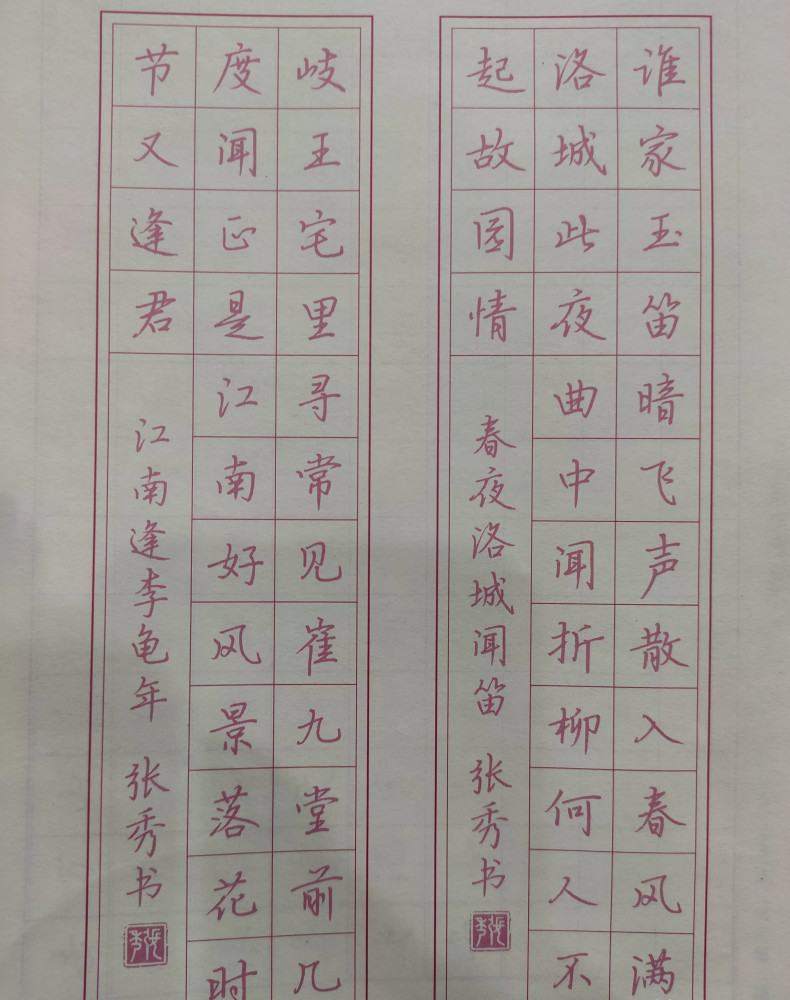 谁家玉笛暗飞声散入春风满
洛城此夜曲中闻折柳何人不
起故园情
春夜洛城闻笛 张秀书
岐王宅里寻常见崔九堂前几
度闻正是江南好风景落花时
节又逢君
江南逢李龟年 张秀书